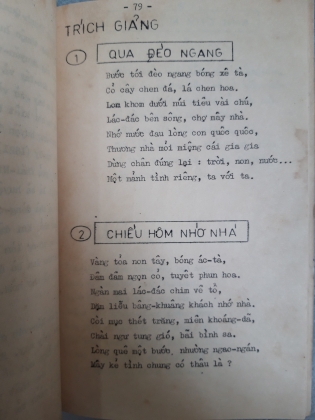 - 79 -
TRÍCH GIẢNG
1 QUA ĐÈO NGANG
Bước tới đèo ngang bóng xế tà,
Cỏ cây chen đá, lá chen hoa.
Lom khom dưới núi tiều vài chú,
Lác-đác bên sông, chợ mấy nhà.
Nhớ nước đau lòng con quốc quốc,
Thương nhà mỏi miệng cái gia gia
Dừng chân đứng lại : trời, non, nước...
Một mảnh tình riêng, ta với ta.
2 CHIỀU HÔM NHỚ NHÀ
Vàng tỏa non tây, bóng ác-tà,
Đầm đầm ngọn cỏ, tuyết phun hoa.
Ngàn mai lác-đác chim về tổ,
Dặm liễu bâng-khuâng khách nhớ nhà.
Còi mục thét trăng, miền khoáng-dã,
Chài ngư tung gió, bãi bình sa.
Lòng quê một bước, nhường ngao-ngán,
Mấy kẻ tình chung có thấu là ?